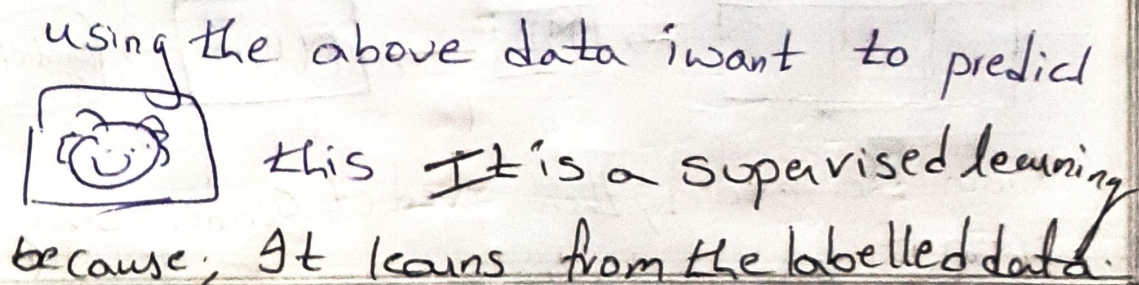 using the above data iwant to predict
this It is a supervised learning
because, It learns from the labelled data.